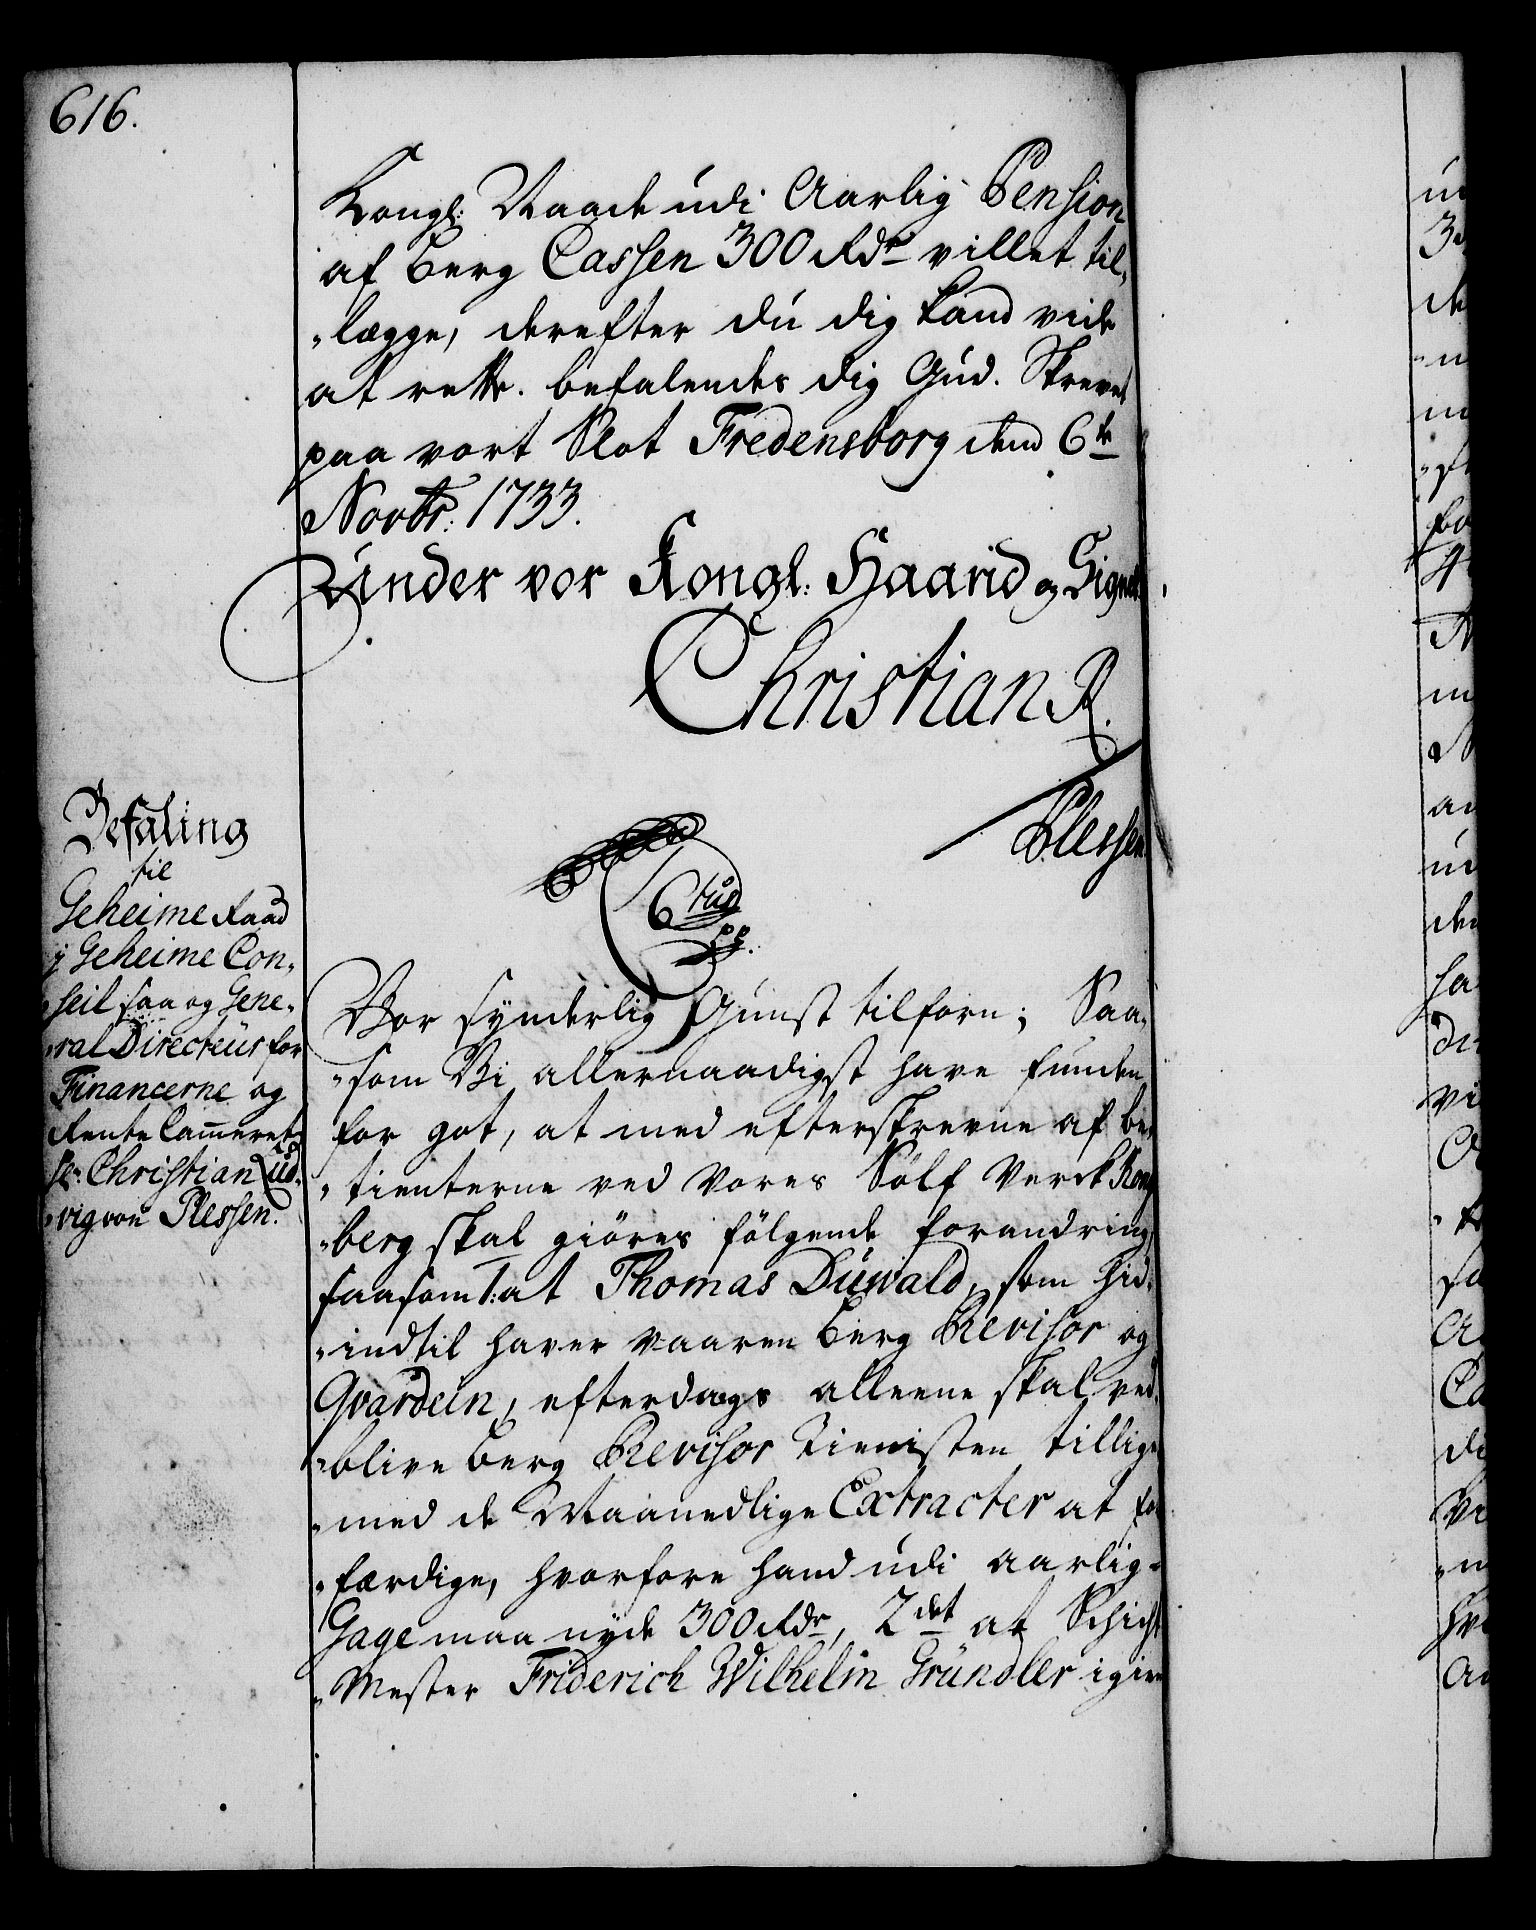 616.
Kongl: Naade udi Aarlig Pension
af Berg Cassen 300 Rdr villet til„
„lægge, derefter du dig kand vide
at rette. befalendes dig Gud. Skrevet
paa vort Slot Fredensborg dend 6te
Novbr: 1733.
Under vor Kongl: Haand og Signet
Christian R.
Plessen
Befaling
til
Geheime Raad
j Geheime Con„
„seil saa og Gene„
„ral Directeur for
Financerne og
Rente Cammeret
Hr: Christian Lud„
„vig von Plessen.
Ctus
pp.
Vor synderlig Gunst tilforn; Saa„
„som Vi allernaadigst have funden
for got, at med efterskrevne af be„
„tienterne ved Vores Sølf Verck Kong
„berg skal giøres følgende forandring,
saasom 1: at Thomas Duwald, som hid„
„indtil haver vaaren Berg Revisor og
Qvardein, efterdags alleene skal ved„
„blive Berg Revisor Tienisten tillige
„med de Maanedlige Extracter at for
„færdige, hvorfore hand udi aarlig
Gage maa nyde 300 Rdr, 2det at Schicht
„Mester Friderich Wilhelm Gründler igien